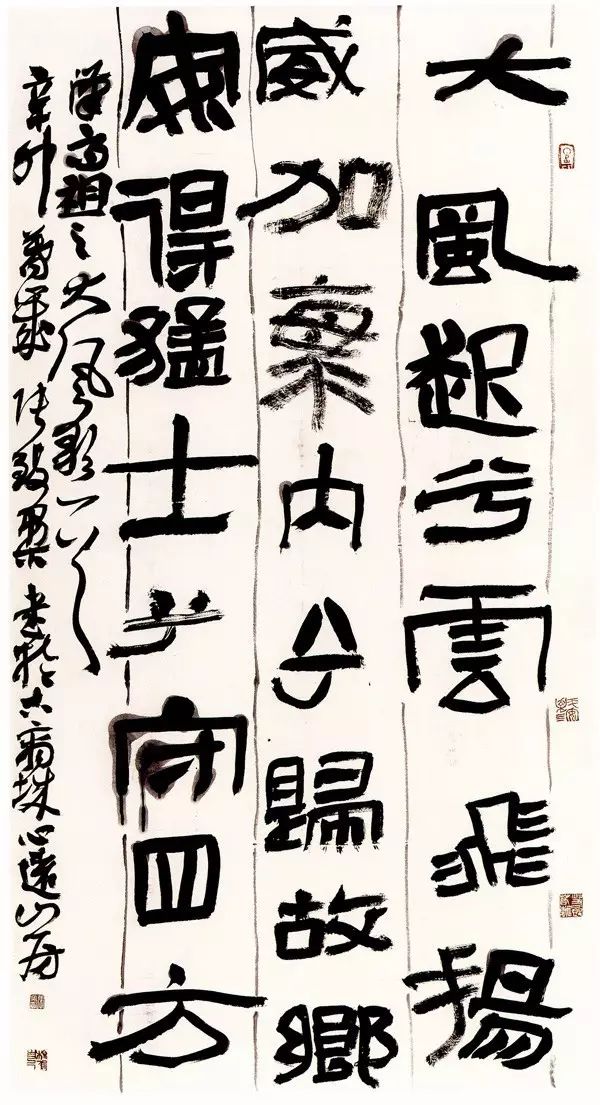 大風起兮雲飛揚
威加海内兮歸故鄉
安得猛士兮守四方
漢高祖之大風歌一首
辛卯 張 書於 心遠山房